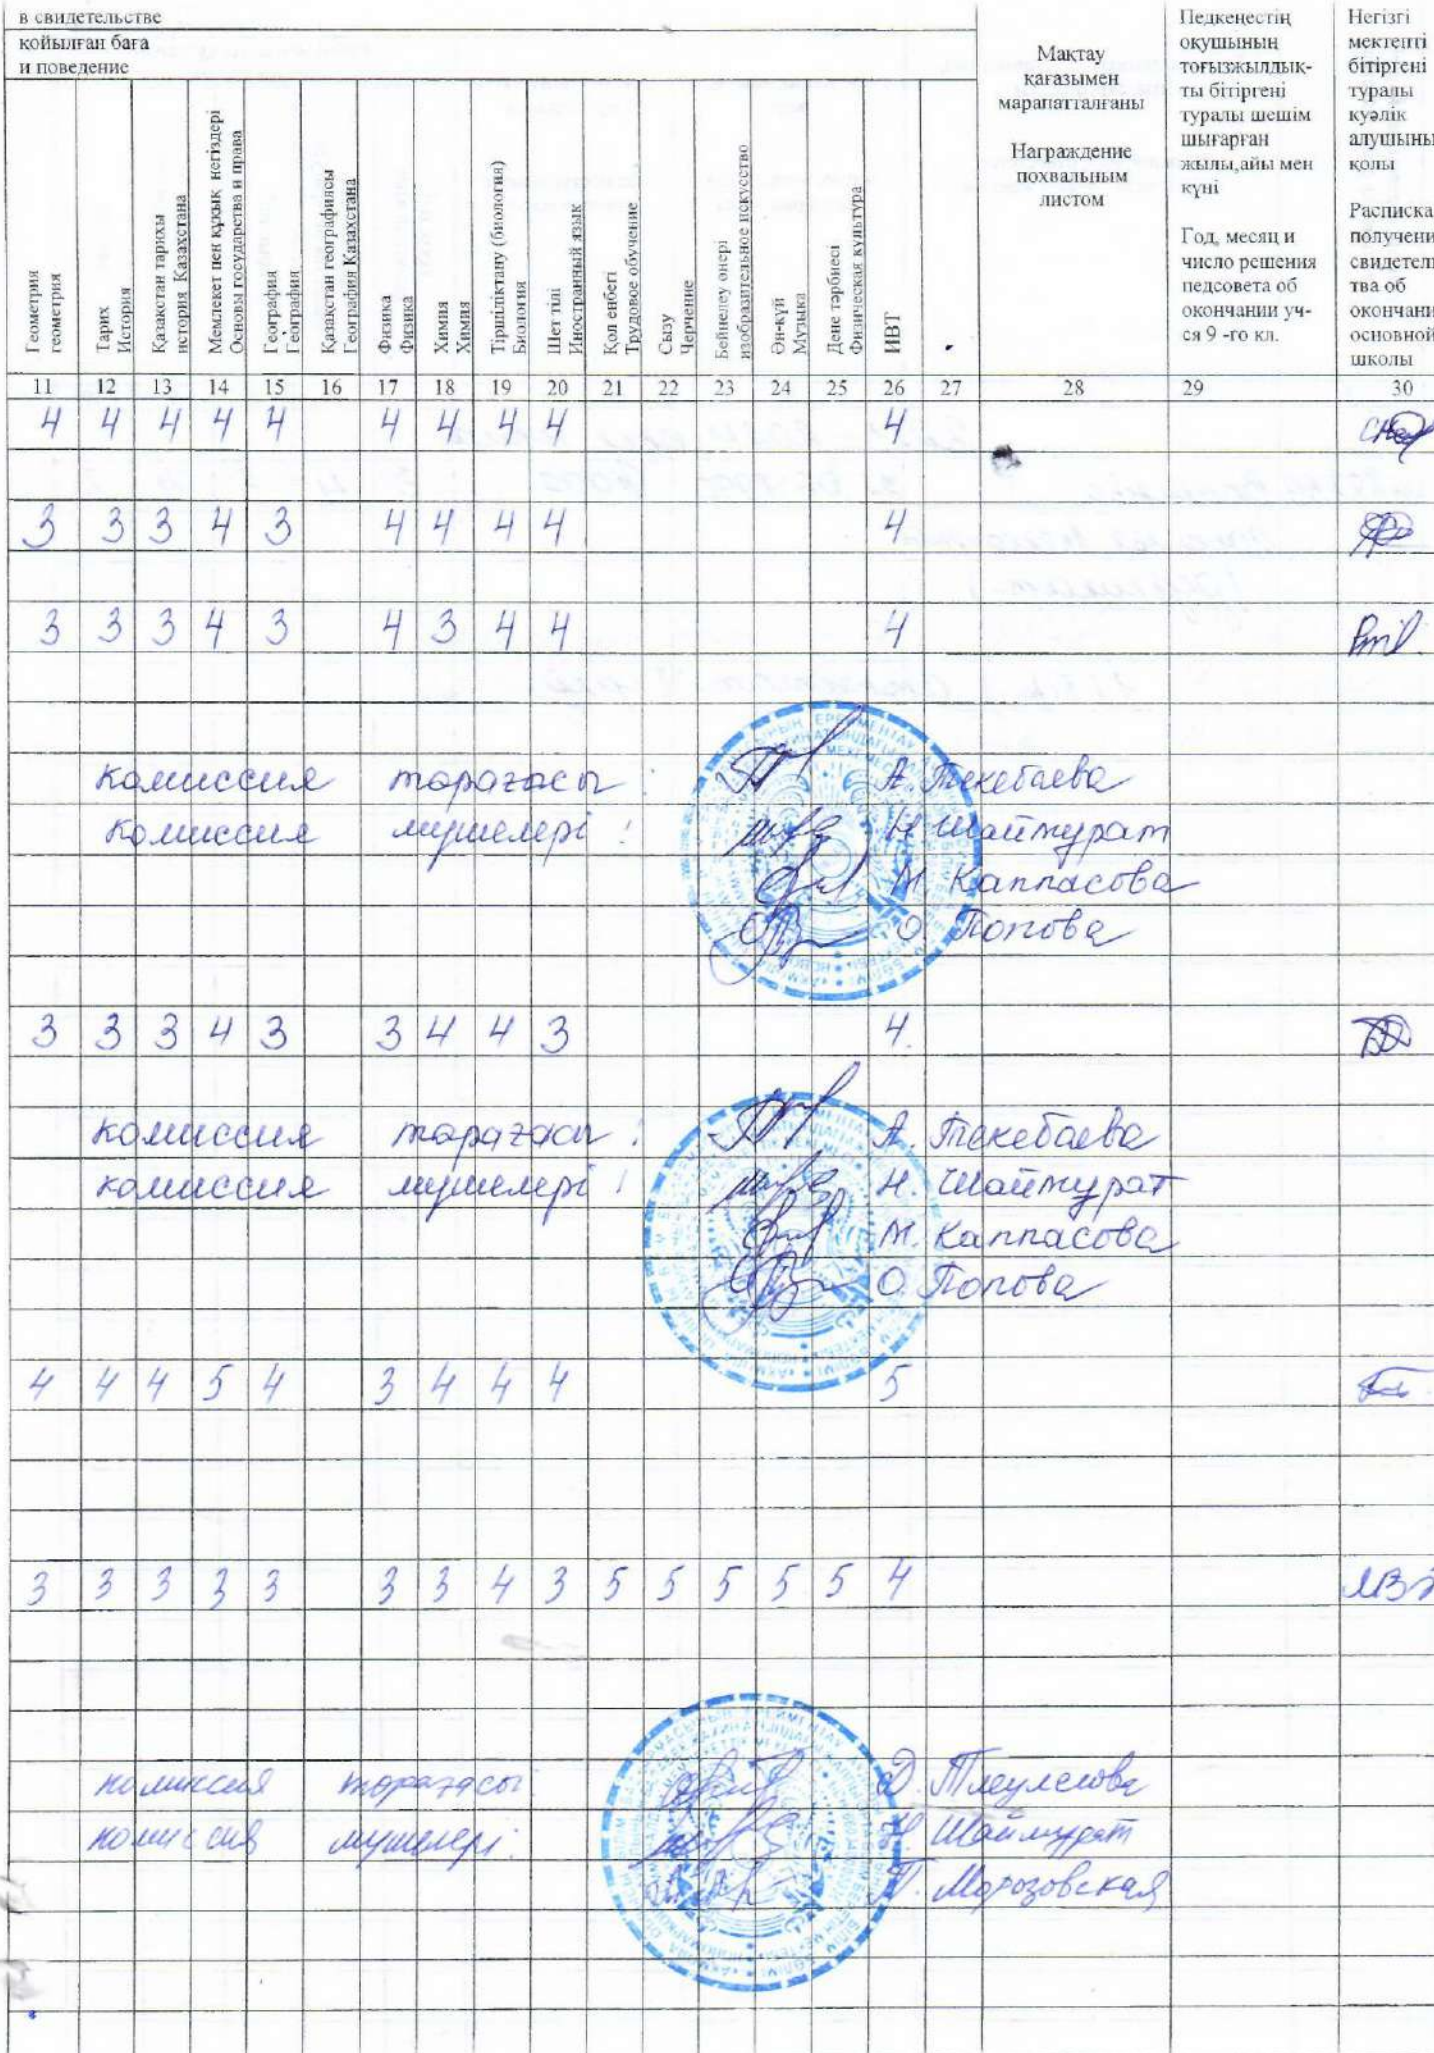 в свидетельстве
қойылған баға
и поведение
Геометрия
геометрия
Тарих
История
Казақстан тарихы
история Казахстана
Мемлекет пен құқық негіздері
Основы государства и права
География
География
Қазақстан географиясы
География Казахстана
Физика
Физика
Химия
Химия
Тіршіліктану (биология)
Биология
Шет тілі
Иностранный язык
Қол еңбегі
Трудовое обучение
Сызу
Черчение
Бейнелеу өнері
изобразительное искусство
Ән-күй
Музыка
Дене тәрбиесі
Физическая культура
ИВТ
Мақтау
қағазымен
марапатталғаны
Награждение
похвальным
листом
Педкеңестің
оқушының
тоғызжылдық-
ты бітіргені
туралы шешім
шығарған
жылы,айы мен
күні
Год, месяц и
число решения
педсовета об
окончании уч-
ся 9 -го кл.
Негізгі
мектепті
бітіргені
туралы
куәлік
алушыны
қолы
Расписка
получени
свидетель
тва об
окончани
основной
школы
11 12 13 14 15 16 17 18 19 20 21 22 23 24 25 26 27 28 29 30
4 4 4 4 4 4 4 4 4 4
3 3 3 4 3 4 4 4 4 4
3 3 3 4 3 4 3 4 4 4
комиссия төрағасы : А. Текебаева
комиссия мүшелері : Н. Шаймурат
М. Каппасова
О. Попова
3 3 3 4 3 3 4 4 3 4.
комиссия төрағасы : А. Текебаева
комиссия мүшелері : Н. Шаймурат
М. Каппасова
О. Попова
4 4 4 5 4 3 4 4 4 5
3 3 3 3 3 3 3 4 3 5 5 5 5 5 4
комиссия төрағасы Д. Тлеулесова
комиссия мүшелері: Н. Шаймурат
Т. Морозовская